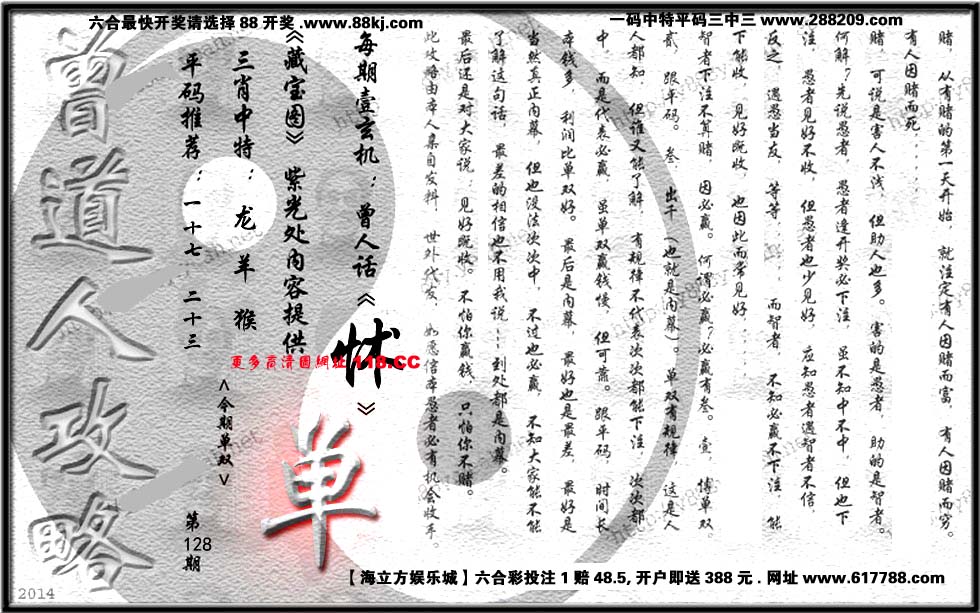 六合最快开奖请选择 88 开奖 .www.88kj.com
一码中特平码三中三 www.288209.com
赌， 从有赌的第一天开始， 就注定有人因赌而富， 有人因赌而穷。
有人因赌而死，......
赌， 可说是害人不浅， 但助人也多。 害的是愚者， 助的是智者。
何解？先说愚者， 愚者逢开奖必下注， 虽不知中不中， 但也下
注， 愚者见好不收， 但愚者也少见好， 应知愚者遇智者不信，
反之， 遇愚当友， 等等......， 而智者， 不知必赢不下注， 能
下能收， 见好既收， 也因此而常见好......
智者下注不算赌， 因必赢。 何谓必赢？必赢有叁。 壹， 博单双，
贰， 跟平码。 叁， 出千 （也就是内幕）。 单双有规律， 这是人
人都知， 但谁又能了解， 有规律不代表次次都能下注， 次次都
中， 而是代表必赢， 虽单双赢钱慢， 但可靠。 跟平码， 时间长
本钱多， 利润比单双好。 最后是内幕， 最好也是最差， 最好是
当然真正内幕， 但也没法次次中， 不过也必赢， 不知大家能不能
了解这句话， 最差的相信也不用我说......到处都是内幕。
最后还是对大家说：见好既收。 不怕你赢钱， 只怕你不赌。
此攻略由本人集自发料， 世外代友， 如愿信本愚者必有机会收车。
每期壹玄机：曾人话《怵》
《藏宝图》 紫光处内容提供
三肖中特： 龙 羊 猴
平码推荐：一十七 二十三
<今期单双>
单
第
128
期
曾道人攻略
更多高清图网址 118.CC
【海立方娱乐城】六合彩投注 1 赔 48.5, 开户即送 388 元 . 网址 www.617788.com
2014